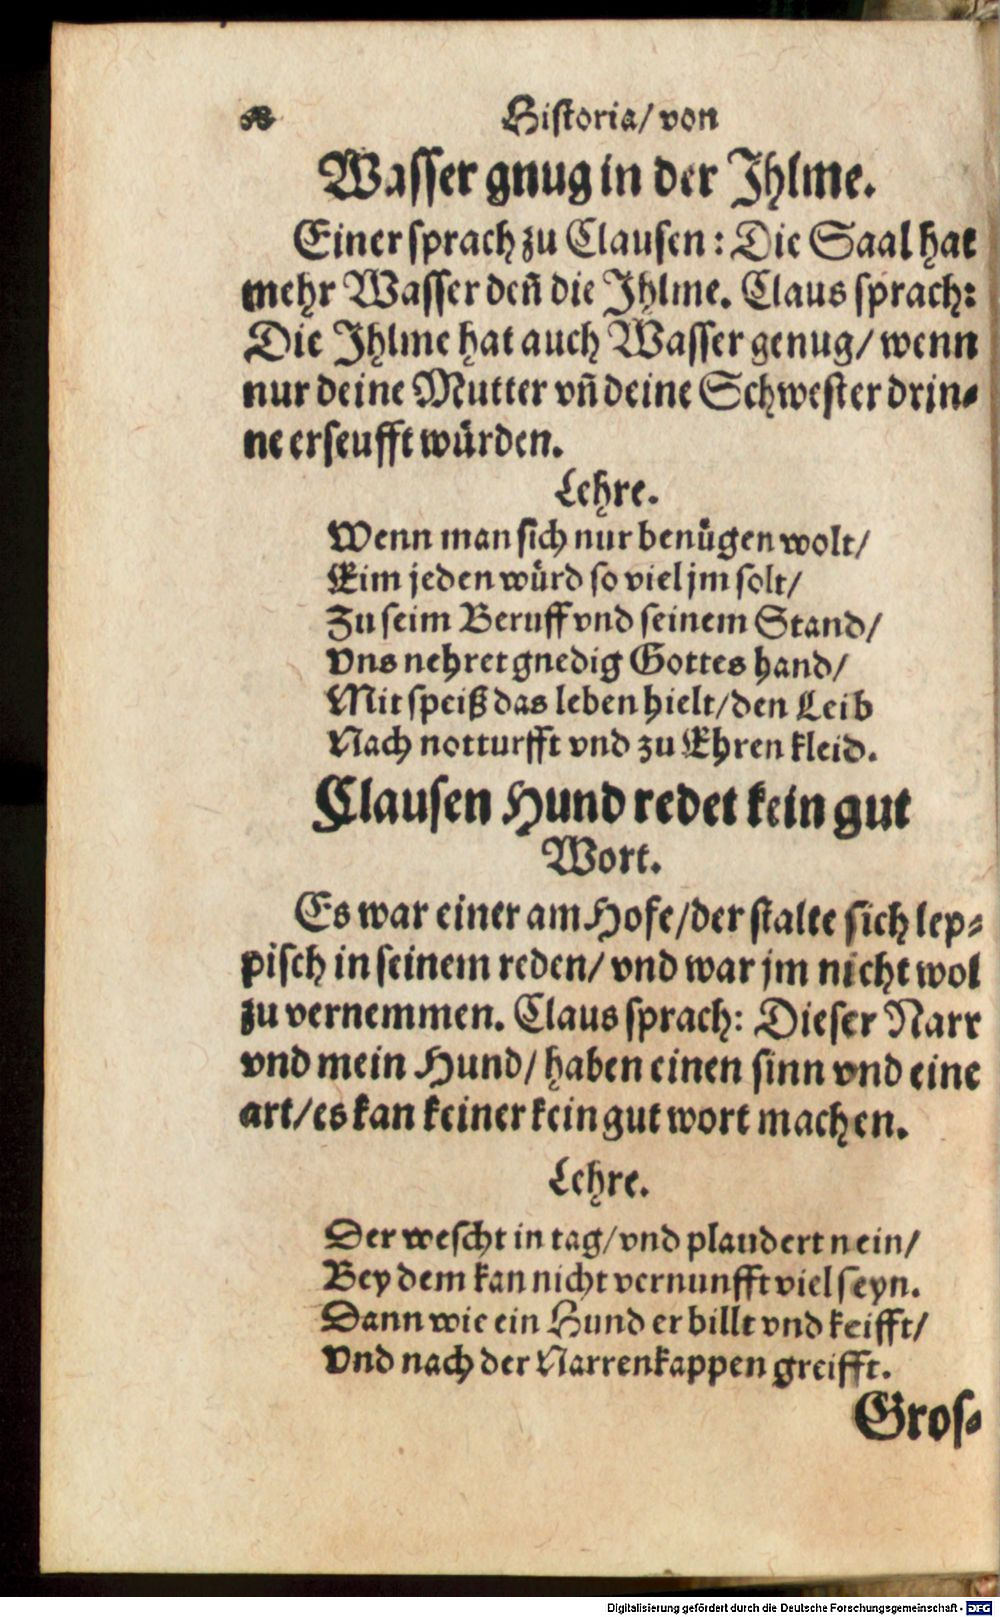 Historia/ von
Wasser gnug in der Jhlme.
Einer sprach zu Clausen: Die Saal hat
mehr Wasser den̄ die Jhlme. Claus sprach:
Die Jhlme hat auch Wasser genug/ wenn
nur deine Mutter vn̄ deine Schwester drin-
ne erseufft wuͤrden.
Lehre.
Wenn man sich nur benuͤgen wolt/
Eim jeden wuͤrd so viel jm solt/
Zu seim Beruff vnd seinem Stand/
Vns nehret gnedig Gottes hand/
Mit speiß das leben hielt/den Leib
Nach notturfft vnd zu Ehren kleid.
Clausen Hund redet kein gut
Wort.
Es war einer am Hofe/der stalte sich lep-
pisch in seinem reden/ vnd war jm nicht wol
zu vernemmen. Claus sprach: Dieser Narr
vnd mein Hund/ haben einen sinn vnd eine
art/es kan keiner kein gut wort machen.
Lehre.
Der wescht in tag/vnd plaudert nein/
Bey dem kan nicht vernunfft viel seyn.
Dann wie ein Hund er billt vnd keifft/
Vnd nach der Narrenkappen greifft.
Gros-
Digitalisierung gefördert durch die Deutsche Forschungsgemeinschaft - DFG